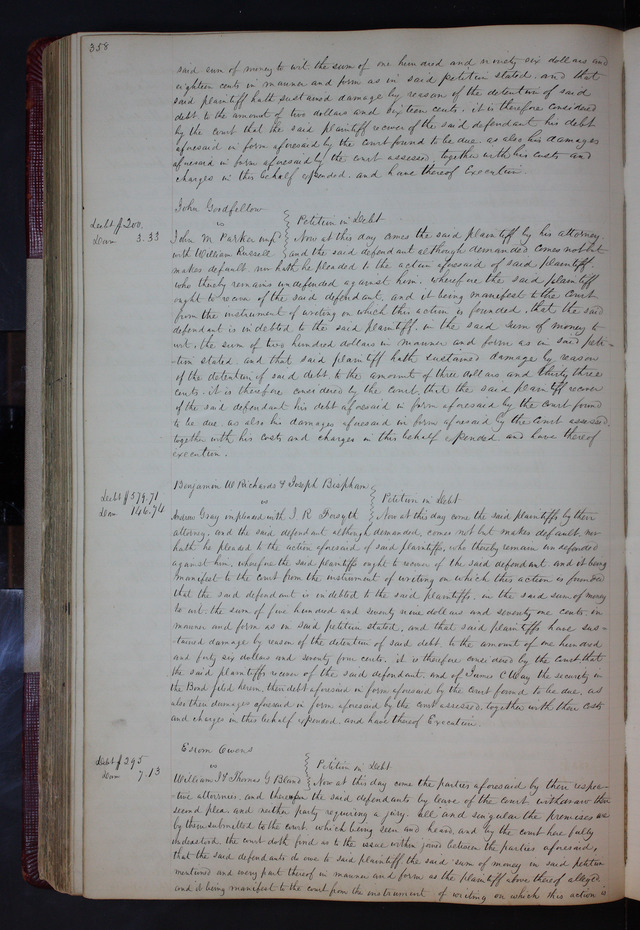 358
said sum of money to wit the sum of one hundred and ninety six dollars and
eighteen cents in manner and form as in said petition stated, and that
said plaintiff hath sustained damage by reason of the detention of said
debt to the amount of two dollars and sixteen cents. it is therefore considered
by the court that the said plaintiff recover of the said defendant his debt
aforesaid in form aforesaid by the court found to be due, as also his damages
aforesaid in form aforesaid by the court assessed, together with his costs and
charges in this behalf expended, and have thereof Execution.
John Goodfellow
vs Petition in Debt
Debt $200.
Dam 3.33
John M Parker imp'd Now at this day comes the said plaintiff by his attorney,
with William Russell and the said defendant although demanded comes not but
makes default, nor hath he pleaded to the action aforesaid of said plaintiff,
who thereby remains undefended against him. wherefore the said plaintiff
ought to recover of the said defendant, and it being manifest to the Court
from the instrument of writing on which this action is founded, that the said
defendant is indebted to the said plaintiff, in the said sum of money to-
wit, the sum of two hundred dollars in manner and form as in said peti-
-tion stated, and that said plaintiff hath sustained damage by reason
of the detention of said debt to the amount of three dollars and thirty three
cents. it is therefore considered by the court, that the said plaintiff recover
of the said defendant his debt aforesaid in form aforesaid by the court found
to be due, as also his damages aforesaid in form aforesaid by the Court assessed
together with his costs and charges in this behalf expended and have thereof
execution.
Benjamin W Richards & Joseph Bispham
vs Petition in Debt
Debt $579.71
Dam 146.74
Andrew Gray impleaded with J. R. Forsyth Now at this day come the said plaintiffs by their
attorney, and the said defendant although demanded, comes not but makes default, nor
hath he pleaded to the action aforesaid of said plaintiffs, who thereby remain undefended
against him, wherefore the said plaintiffs ought to recover of the said defendant, and it being
manifest to the court from the instrument of writing on which this action is founded
that the said defendant is indebted to the said plaintiffs, in the said sum of money
to wit, the sum of five hundred and seventy nine dollars and seventy one cents, in
manner and form as in said petition stated, and that said plaintiffs have sus-
-tained damage by reason of the detention of said debt to the amount of one hundred
and forty six dollars and seventy four cents. it is therefore considered by the Court that
the said plaintiffs recover of the said defendant, and of James C Way the security in
the Bond filed herein, their debt aforesaid in form aforesaid by the court found to be due, as
also their damages aforesaid in form aforesaid by the court assessed, together with their costs
and charges in this behalf expended, and have thereof Execution.
Esrom Owens
vs Petition in Debt
Debt $395
Dam 7.13
William T & Thomas G Bland Now at this day come the parties aforesaid by their respec-
-tive attornies, and thereupon the said defendants by leave of the court withdraw their
second plea, and neither party requiring a jury, all and singular the premises are
by them submitted to the court, which being seen and heard, and by the court here fully
understood, the court doth find as to the issue within joined between the parties aforesaid,
that the said defendants do owe to said plaintiff the said sum of money in said petition
mentioned and every part thereof in manner and form as the plaintiff above thereof alleged
and it being manifest to the court from the instrument of writing on which this action is